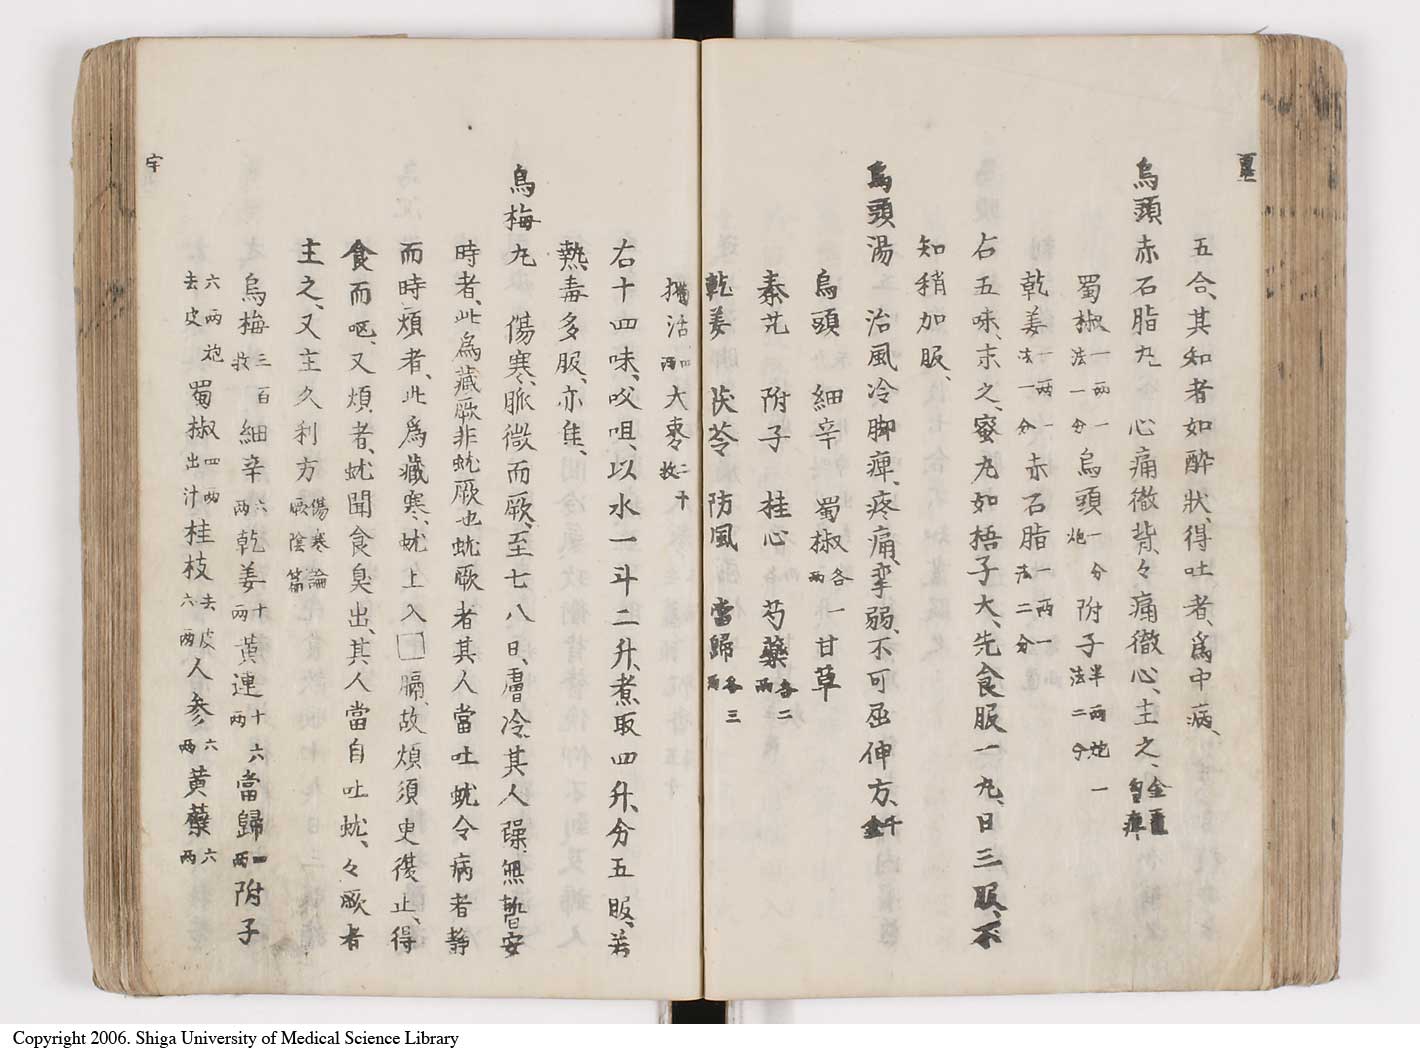 五合、其知者如醉狀、得吐者、爲中病、
烏頭赤石脂丸 心痛徹背々痛徹心、主之、金匱 胸痺
蜀椒一兩一法一分 烏頭一分炮 附子半兩炮一法二分
乾姜一兩一法一分 赤石脂一兩一法二分
右五味、末之、蜜丸如梧子大、先食服一丸、日三服、不
知稍加服、
烏頭湯 治風冷脚痺、疼痛、攣弱、不可屈伸方、千金
烏頭 細辛 蜀椒各一兩 甘草
秦艽 附子 桂心 芍藥各二兩
乾姜 茯苓 防風 當歸各三兩
獨活四兩 大棗二十枚
右十四味、㕮咀、以水一斗二升、煮取四升、分五服、若
熱毒多服、亦佳、
烏梅丸 傷寒、脈微而厥、至七八日、膚冷、其人躁、無暫安
時者、此爲藏厥非蚘厥也蚘厥者其人當吐蚘令病者靜
而時煩者、此爲藏寒、蚘上入□膈、故煩須臾復止、得
食而嘔、又煩者、蚘聞食臭出、其人當自吐蚘、々厥者
主之、又主久利方 傷寒論 厥陰篇
烏梅三百枚 細辛六兩 乾姜十兩 黃連十六兩 當歸四兩 附子
六兩炮去皮 蜀椒四兩出汁 桂枝去皮六兩 人參六兩 黃蘗六兩
宇